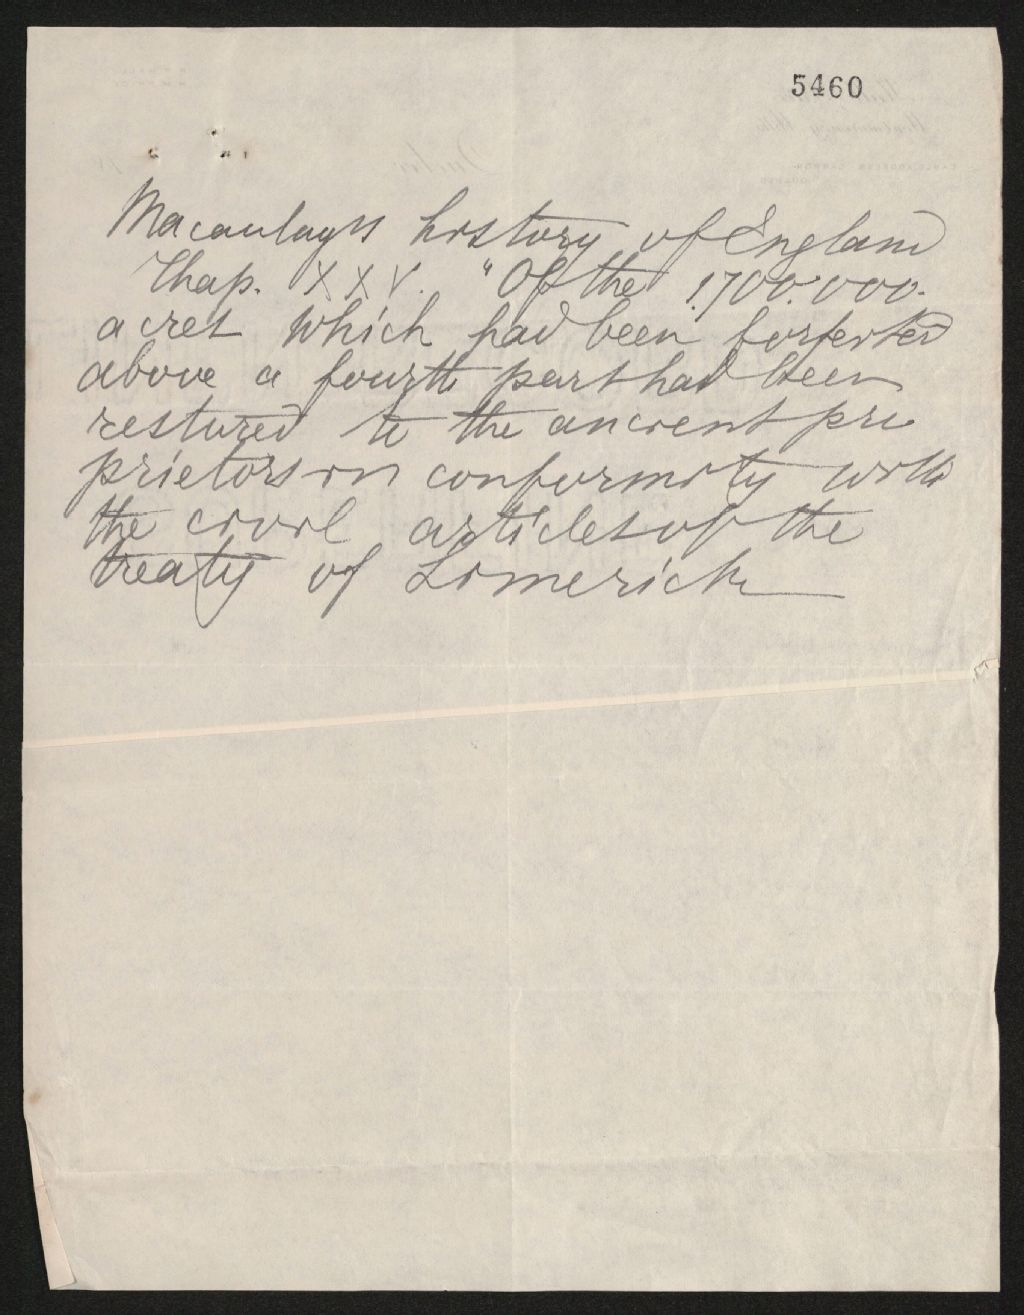 5460
Macaulay's history of England
Chap. XXV. "Of the 1.700.000.
acres which had been forfeited
above a fourth part had been
restored to the ancient pro
prietors in conformity with
the civil articles of the
treaty of Limerick